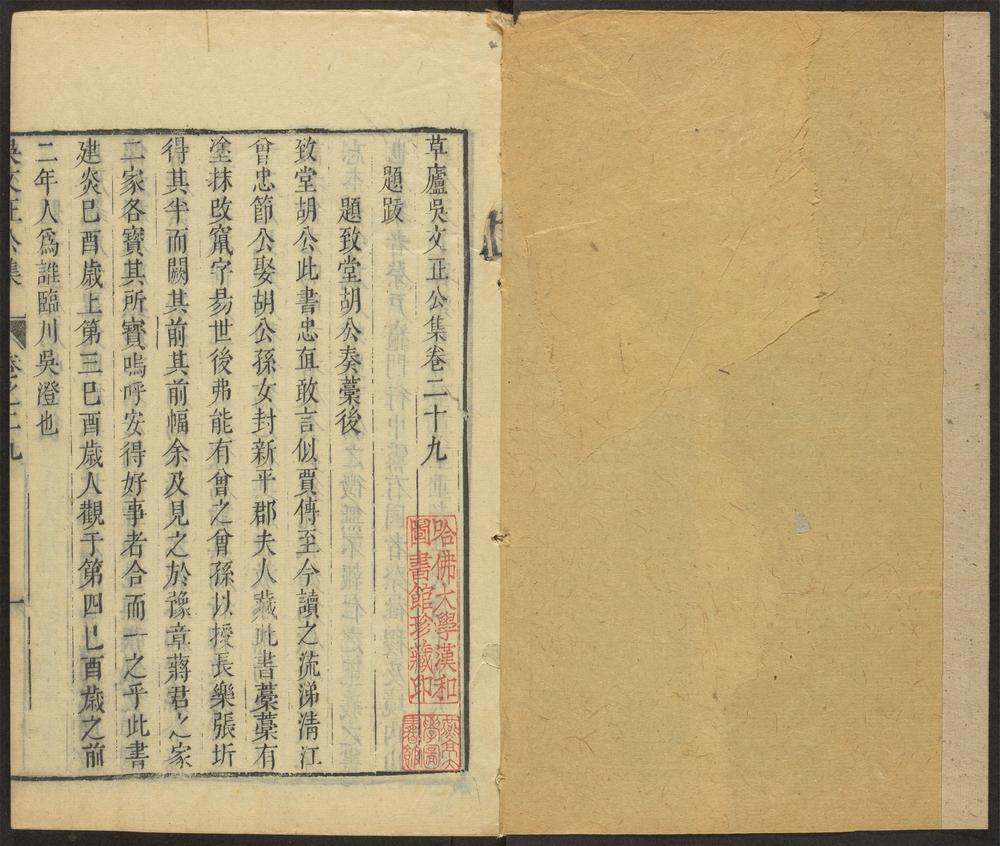 草廬吳文正公集卷二十九
題跋
題致堂胡公奏藁後
致堂胡公此書忠直敢言似賈傅至今讀之流涕清江
曾忠節公娶胡公孫女封新平郡夫人藏此書藁藁有
塗抹改竄字易世後弗能有曾之曾孫以授長樂張圻
得其半而闕其前其前幅余及見之於豫章蔣君之家
二家各寶其所寶嗚呼安得好事者合而一之乎此書
建炎己酉歲上第三己酉歲人觀于第四己酉歲之前
二年人爲誰臨川吳澄也
吳文正公集
卷之二九
一
哈佛大學漢和
圖書館珍藏印
燕京大
學圖
書館